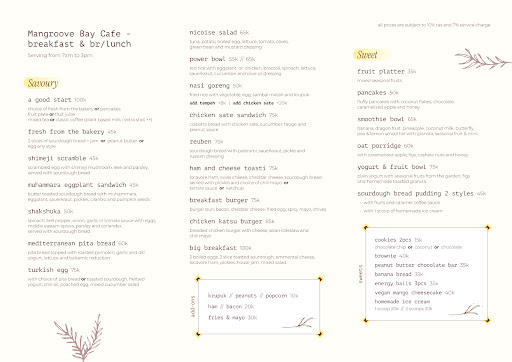 Mangroove Bay Cafe -
breakfast & br/lunch
Serving from 7am to 3pm
Savoury
a good start 100k
choice of fresh from the bakery, or pancakes
fruit plate or fruit juice
fresh from the bakery 45k
2 slices of sourdough bread + jam or peanut butter or
egg any style
shimeji scramble 45k
scrambled egg with shimeji mushroom, leek and parsley,
served with sourdough bread
muhammara eggplant sandwich 45k
butter toasted sourdough bread with muhammara,
eggplant, sauerkraut, pickles, cilantro and pumpkin seeds
shakshuka 50k
spinach, bell pepper, onion, garlic in tomato sauce with eggs,
middle eastern spices, parsley and coriander.
served with sourdough bread
mediterranean pita bread 60k
pita bread topped with roasted pumpkin, garlic and dill
yogurt, lettuce and balsamic reduction
turkish egg 75k
with choice of pita bread or toasted sourdough, herbed
yogurt, chili oil, poached egg, mixed cucumber salad
nicoise salad 65k
tuna, potato, boiled egg, lettuce, tomato, olives,
green bean and mustard dressing
power bowl 55k // 65k
red rice with eggplant or chicken, broccoli, spinach, lettuce,
sauerkraut, cucumber and olive oil dressing
nasi goreng 50k
fried rice with vegetable, egg, sambal matah and krupuk
add tempeh +8k | add chicken sate +25k
chicken sate sandwich 75k
ciabatta bread with chicken sate, cucumber, rauge and
peanut sauce
reuben 75k
sourdough bread with pastrami, sauerkraut, pickle and
russian dressing
ham and cheese toasti 75k
brioche ham, swiss cheese, cheddar cheese, sourdough bread
served with pickles and choice of chili mayo or
tomato sauce or ketchup
breakfast burger 75k
burger bun, bacon, cheddar cheese, fried egg, spicy mayo, chives
chicken katsu burger 85k
breaded chicken burger with cheese, asian coleslaw and
chili mayo
big breakfast 100k
2 boiled eggs, 2 slice toasted sourdough, emmental cheese,
brioche ham, pickles, house jam, mixed salad
add-ons
krupuk // peanuts // popcorn 10k
ham // bacon 20k
fries & mayo 30k
all prices are subject to 10% tax and 7% service charge
Sweet
fruit platter 35k
mixed seasonal fruits
pancakes 50k
fluffy pancakes with coconut flakes, chocolate,
caramelised apple and honey
smoothie bowl 65k
banana, dragon fruit, pineapple, coconut milk, butterfly
pea & lemon smoothie with granola, seasonal fruit & mint
oat porridge 60k
with caramelised apple, figs, cashew nuts and honey
yogurt & fruit bowl 75k
plain yogurt with seasonal fruits from the garden, figs
and homemade toasted granola
sourdough bread pudding 2 styles 45k
- with fruits and caramel coffee sauce
- with 1 scoop of homemade ice cream
sweets
cookies 2pcs 15k
chocolate chip or coconut or chocolate
brownie 40k
peanut butter chocolate bar 35k
banana bread 33k
energy balls 3pcs 30k
vegan mango cheesecake 40k
homemade ice cream
1 scoop 20k // 2 scoops 30k